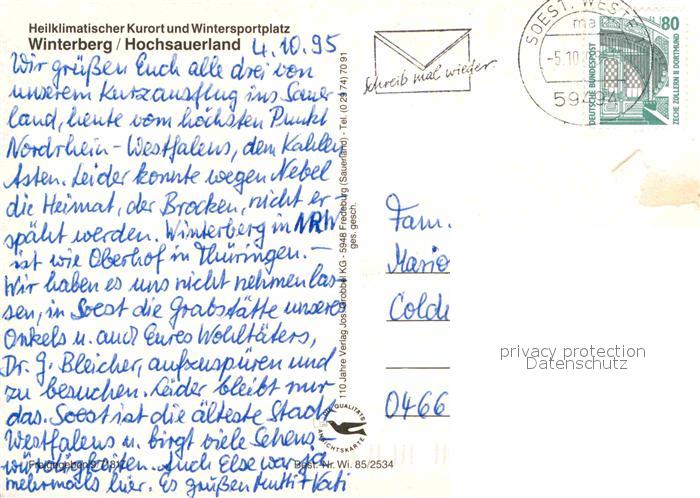 Heilklimatischer Kurort und Wintersportplatz
Winterberg / Hochsauerland
4.10.95
Wir grüßen Euch alle drei von
unserem Kurzausflug ins Sauer-
land, heute vom höchsten Punkt
Nordrhein-Westfalens, dem Kahlen
Asten. Leider konnte wegen Nebel
die Heimat, der Brocken, nicht er-
späht werden. Winterberg in NRW
ist wie Oberhof in Thüringen. –
Wir haben es uns nicht nehmen las-
sen, in Soest die Grabstätte unseres
Onkels u. auch Eures Wohltäters,
Dr. G. Bleicher, aufzuspüren und
zu besuchen. Leider bleibt nur
das. Soest ist die älteste Stadt
Westfalens u. birgt viele Sehens-
würdigkeiten. Auch Else war ja
mehrmals hier. Es grüßen Mutti + Vati
Best. Nr. Wi. 85/2534
110 Jahre Verlag Jos. Grobbel KG - 5948 Fredeburg (Sauerland) - Tel. (0 29 74) 70 91
ges. gesch.
QUALITÄTS
ANSICHTSKARTE
Schreib mal wieder.
SOEST, WESTF
-5.10
59494
80
DEUTSCHE BUNDESPOST
ZECHE ZOLLERN II DORTMUND
Fam.
Mario
Colde
0466
privacy protection
Datenschutz